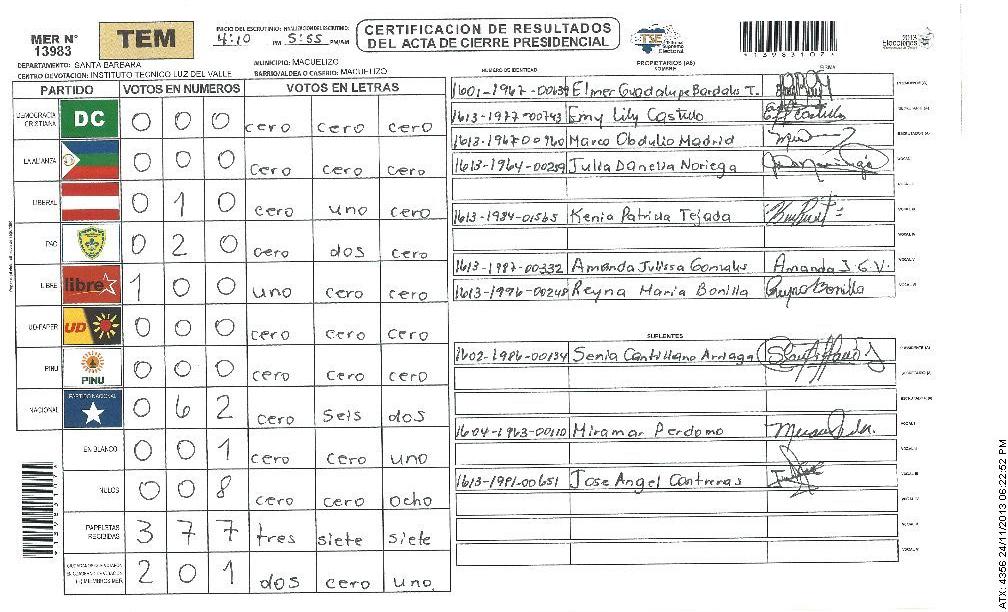 MER N° 13983
TEM
INICIO DEL ESCRUTINIO: FINALIZACION DEL ESCRUTINIO:
4:10 PM 5:55 PM/AM
CERTIFICACION DE RESULTADOS
DEL ACTA DE CIERRE PRESIDENCIAL
TSE
Tribunal Supremo Electoral
2013
Elecciones
DEPARTAMENTO: SANTA BARBARA
MUNICIPIO: MACUELIZO
CENTRO DE VOTACION: INSTITUTO TECNICO LUZ DEL VALLE
BARRIO/ALDEA O CASERIO: MACUELIZO
PARTIDO VOTOS EN NUMEROS VOTOS EN LETRAS
DEMOCRACIA CRISTIANA DC 0 0 0 cero cero cero
LA ALIANZA 0 0 0 cero cero cero
LIBERAL 0 1 0 cero uno cero
PAC 0 2 0 cero dos cero
LIBRE libre 1 0 0 uno cero cero
UD-FAPER UD 0 0 0 cero cero cero
PINU PINU 0 0 0 cero cero cero
NACIONAL PARTIDO NACIONAL 0 6 2 cero seis dos
EN BLANCO 0 0 1 cero cero uno
NULOS 0 0 8 cero cero ocho
PAPELETAS RECIBIDAS 3 7 7 tres siete siete
2 0 1 dos cero uno
PROPIETARIOS (AS)
NUMERO DE IDENTIDAD NOMBRE FIRMA
Elmer Guadalupe Bardales T. PRESIDENTE (A)
1613-1977-00743 Emy Lily Castillo SECRETARIO (A)
Marco Obdulio Madrid ESCRUTADOR (A)
1613-1964-00259 Julia Danelia Noriega VOCAL I
VOCAL II
1613-1984-01565 Kenia Patricia Tejada VOCAL III
VOCAL IV
1613-1987-00332 Amanda Julissa Gonzales Amanda J.G.V. VOCAL V
1613-1996-00248 Reyna Maria Bonilla Reyna Bonilla VOCAL VI
SUPLENTES
1602-1986-00134 Senia Cantillano Arriaga PRESIDENTE (A)
SECRETARIO (A)
ESCRUTADOR (A)
1604-1963-00110 Miramar Perdomo VOCAL I
VOCAL II
1613-1981-00651 Jose Angel Contreras VOCAL III
VOCAL IV
VOCAL V
VOCAL VI
ATX: 4356 24/11/2013 06:22:52 PM